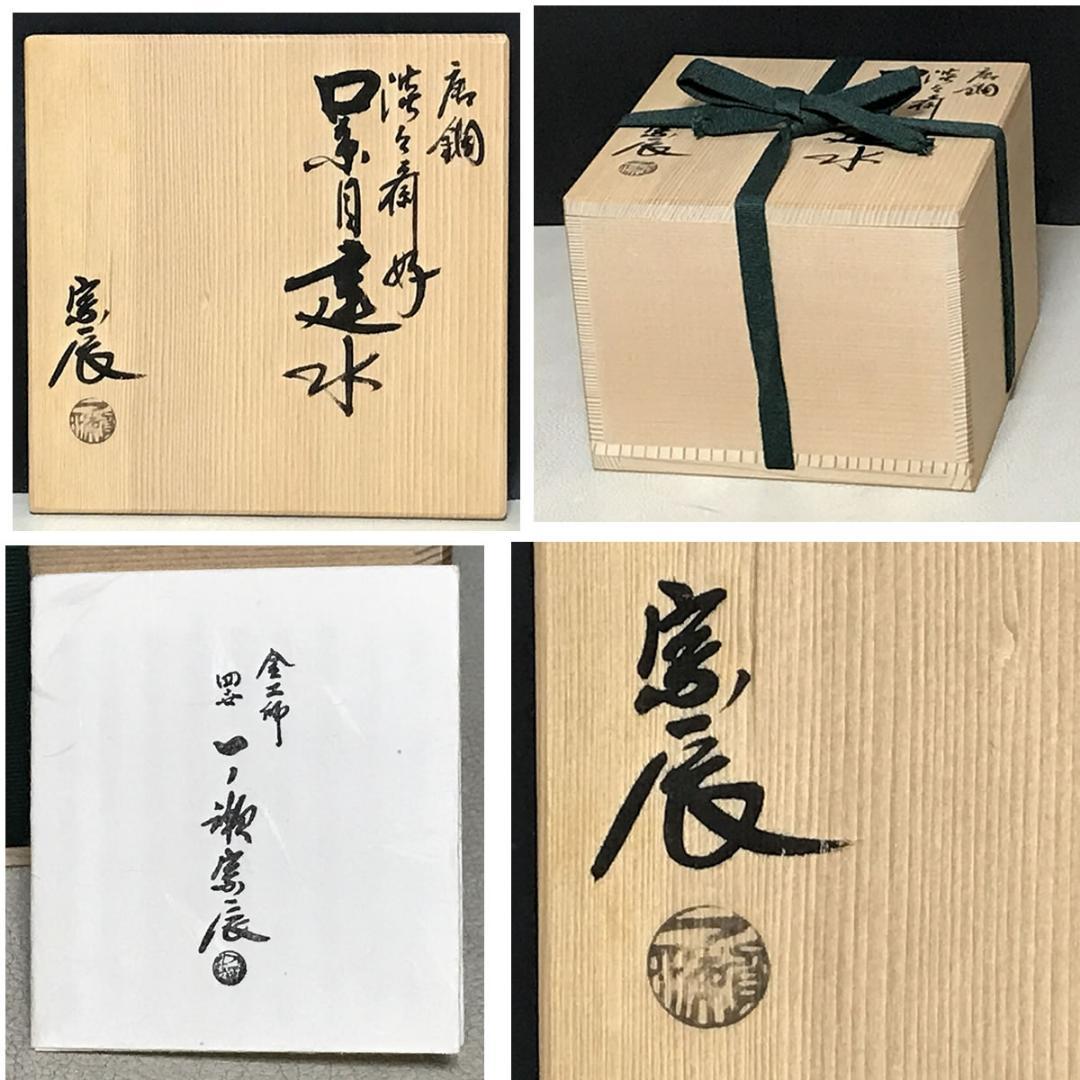 唐銅
淡々斎好
累目建水
宗辰
唐銅
淡々斎
水
宗辰
金工師
四世
一ノ瀬宗辰
宗辰